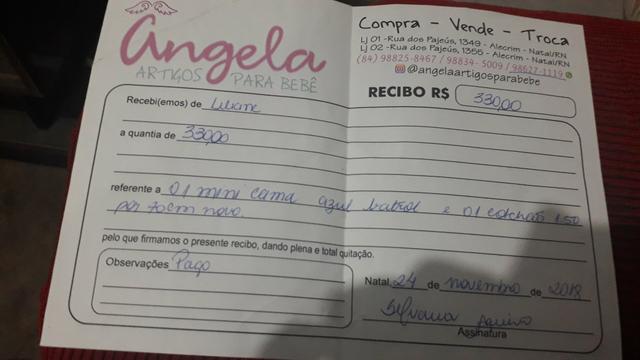 Angela
ARTIGOS PARA BEBÊ
Compra - Vende - Troca
Lj 01 - Rua dos Pajeús, 1349 - Alecrim - Natal/RN
Lj 02 - Rua dos Pajeús, 1355 - Alecrim - Natal/RN
(84) 98825-8467 / 98834-5009 / 98627-1119
@angelaartigosparabebe
RECIBO R$ 330,00
Recebi(emos) de Liliane
a quantia de 330,00
referente a 01 mini cama azul e 01 colchão 1.50
por 70cm novo.
pelo que firmamos o presente recibo, dando plena e total quitação.
Observações Pago
Natal 24 de novembro de 2018
Silvana
Assinatura